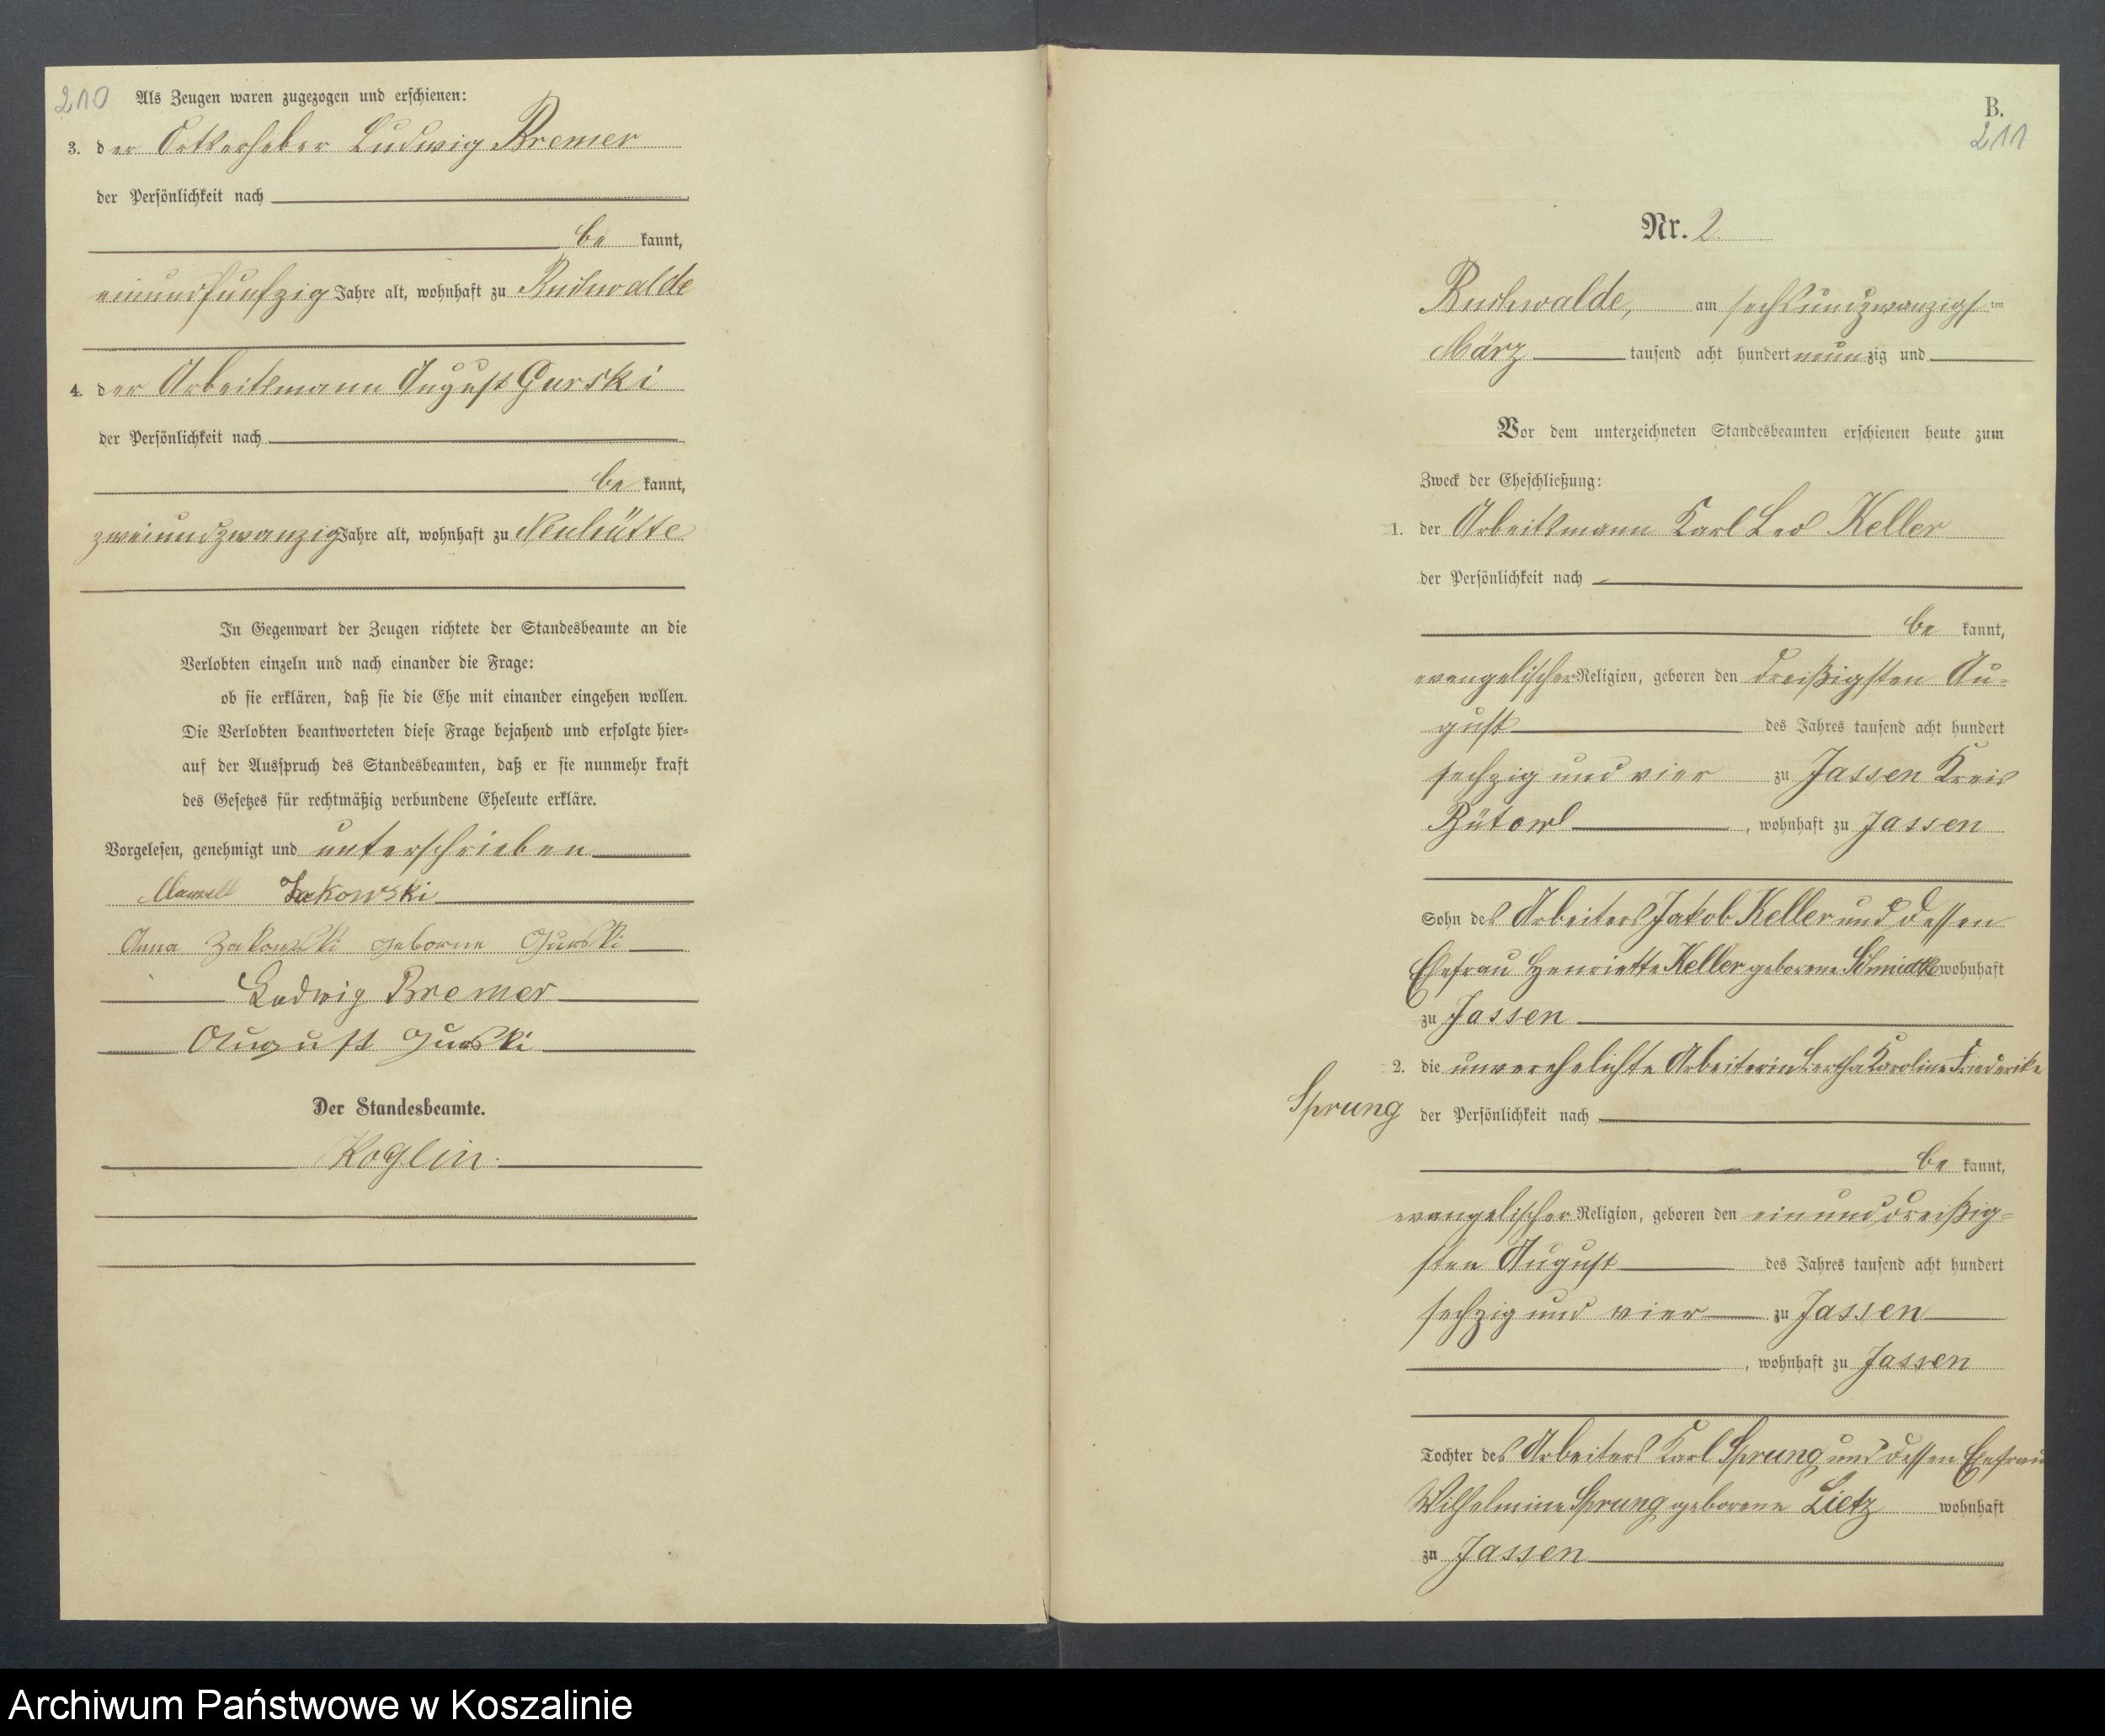 210
Als Zeugen waren zugezogen und erschienen:
3. der Ludwig Bremer
der Persönlichkeit nach
be kannt,
einundfünfzig Jahre alt, wohnhaft zu Buchwalde
4. der Arbeitsmann August Gurski
der Persönlichkeit nach
be kannt,
zweiundzwanzig Jahre alt, wohnhaft zu Neuhütte
In Gegenwart der Zeugen richtete der Standesbeamte an die
Verlobten einzeln und nach einander die Frage:
ob sie erklären, daß sie die Ehe mit einander eingehen wollen.
Die Verlobten beantworteten diese Frage bejahend und erfolgte hier-
auf der Ausspruch des Standesbeamten, daß er sie nunmehr kraft
des Gesetzes für rechtmäßig verbundene Eheleute erkläre.
Vorgelesen, genehmigt und unterschrieben
Anna Zakowski geborne Gurski
Ludwig Bremer
August Gurski
Der Standesbeamte.
Koglin.
B.
211
Nr. 2.
Buchwalde, am sechsundzwanzigsten
März tausend acht hundert neunzig und
Vor dem unterzeichneten Standesbeamten erschienen heute zum
Zweck der Eheschließung:
1. der Arbeitsmann Karl Leo Keller
der Persönlichkeit nach
be kannt,
evangelischer Religion, geboren den dreißigsten Au-
gust des Jahres tausend acht hundert
sechzig und vier zu Jassen Kreis
Bütow , wohnhaft zu Jassen
Sohn des Arbeiters Jakob Keller und dessen
Ehefrau Henriette Keller geborene wohnhaft
zu Jassen
2. die unverehelichte Arbeiterin Bertha Karoline Friederike
Sprung der Persönlichkeit nach
be kannt,
evangelischer Religion, geboren den einunddreißig-
sten August des Jahres tausend acht hundert
sechzig und vier zu Jassen
, wohnhaft zu Jassen
Tochter des Arbeiters Karl Sprung und dessen Ehefrau
Wilhelmine Sprung geborene Lietz wohnhaft
zu Jassen
Archiwum Państwowe w Koszalinie